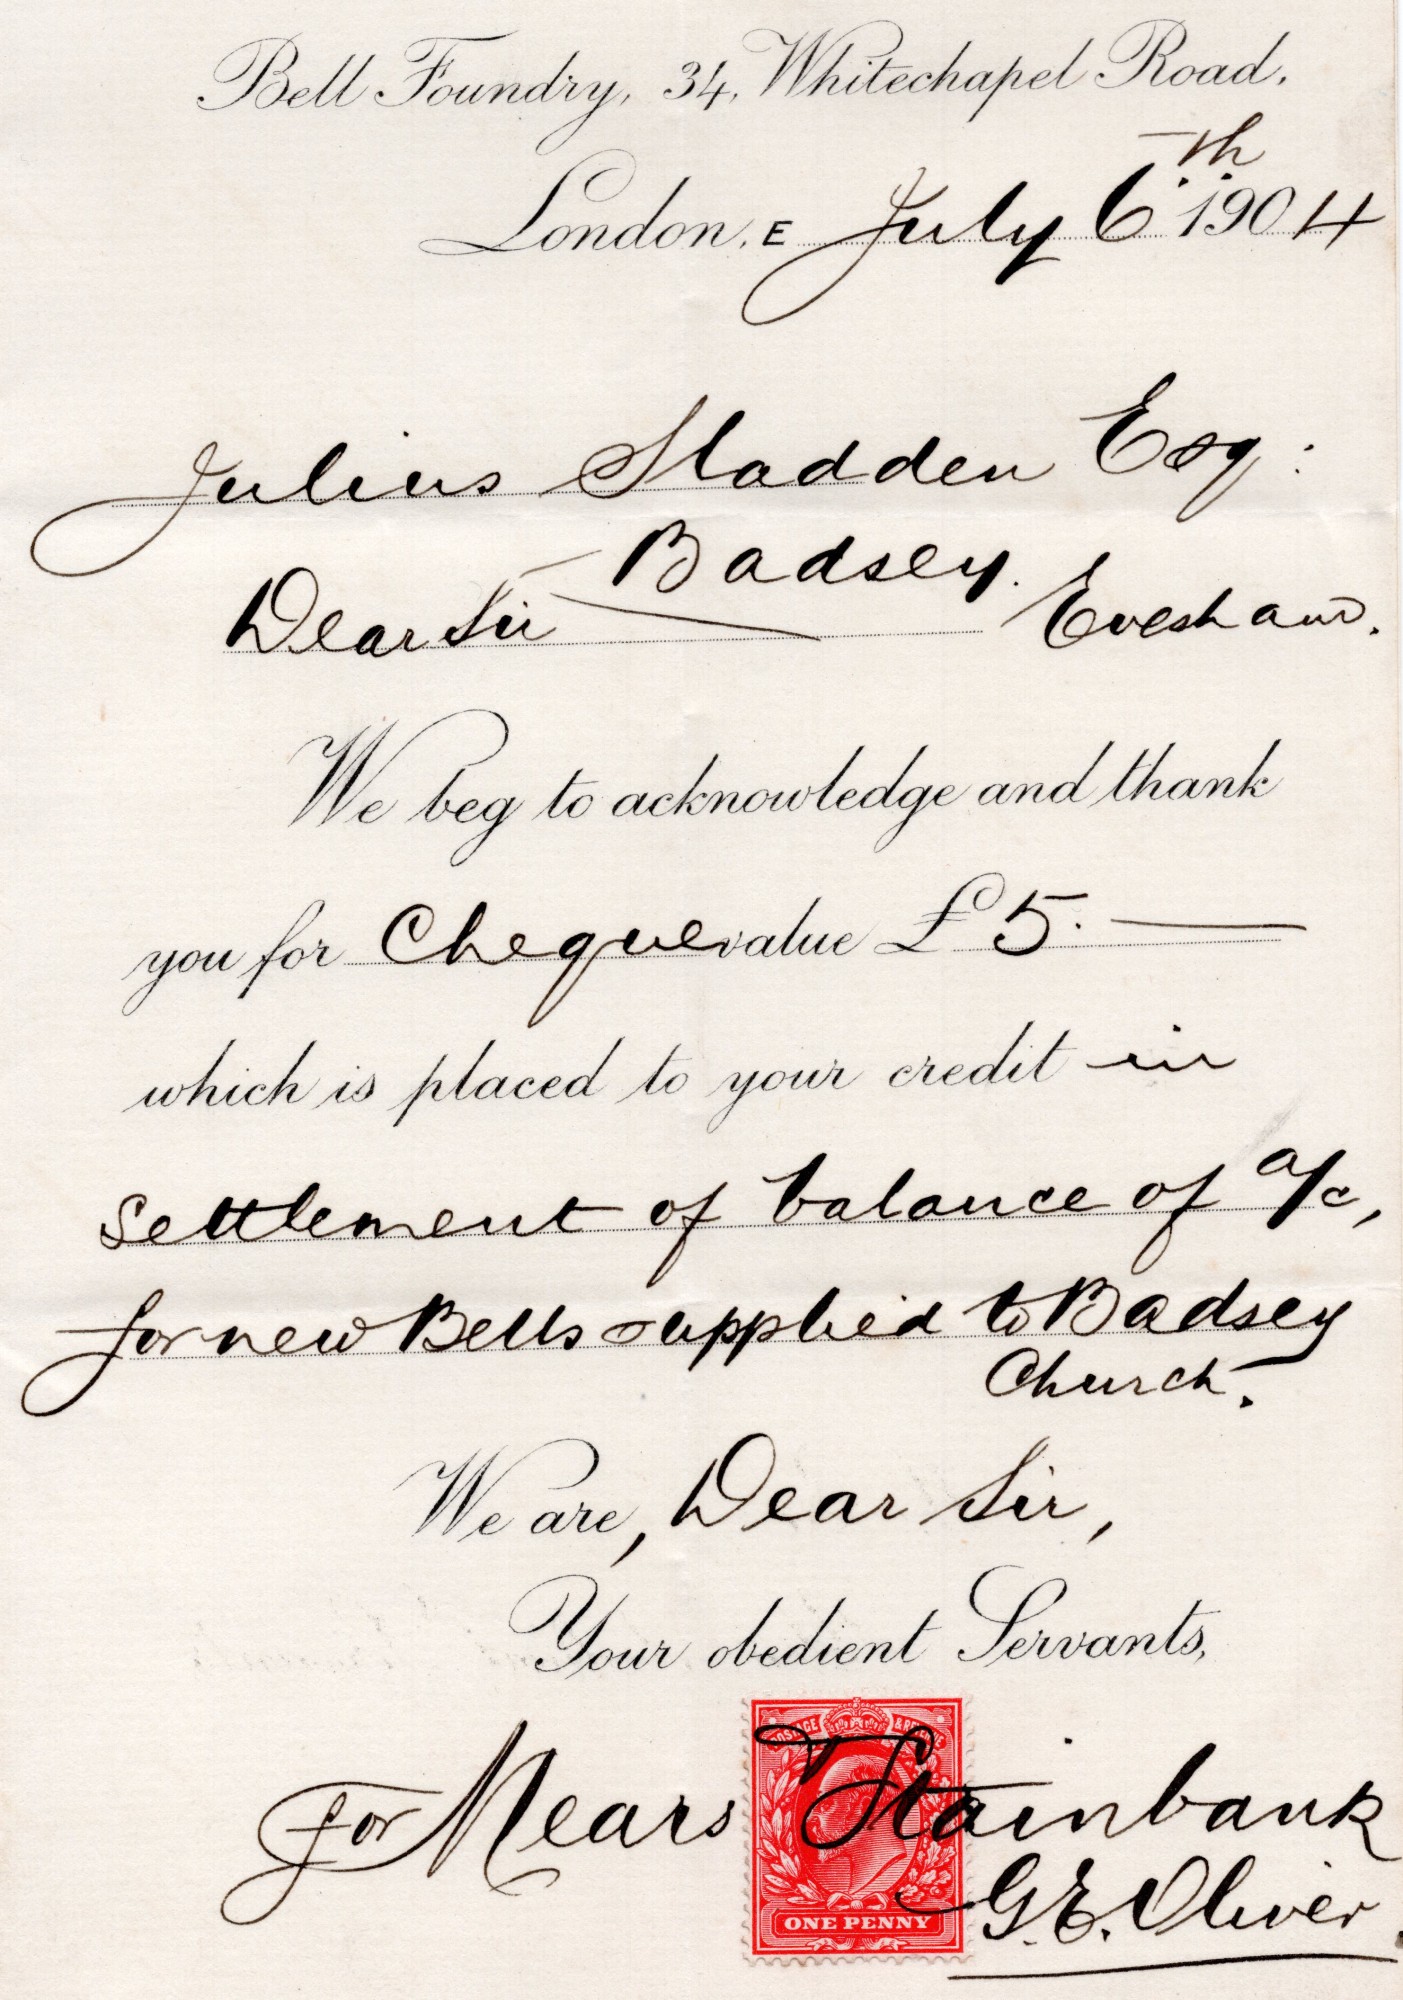 Bell Foundry, 34, Whitechapel Road,
London, E July 6th 1904
Julius Sladden Esq:
Badsey.
Dear Sir Evesham.
We beg to acknowledge and thank
you for Cheque value £5. —
which is placed to your credit in
settlement of balance of a/c,
for new Bells supplied to Badsey
Church.
We are, Dear Sir,
Your obedient Servants,
POSTAGE & REVENUE
for Mears & Stainbank
G.E. Oliver.
ONE PENNY